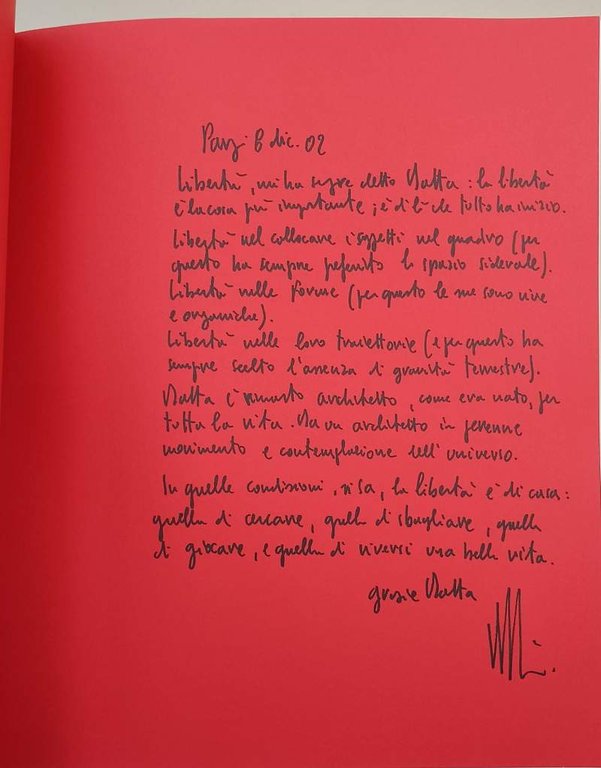 Parigi 6 dic. 02
Libertà, mi ha sempre detto Matta : la libertà
è la cosa più importante ; è di lì che tutto ha inizio.
Libertà nel collocare i soggetti nel quadro (per
questo ha sempre preferito lo spazio siderale).
Libertà nelle forme (per questo le sue sono vive
e organiche).
Libertà nelle loro traiettorie (e per questo ha
sempre scelto l'assenza di gravità terrestre).
Matta è rimasto architetto, come era nato, per
tutta la vita. Ma un architetto in perenne
movimento e contemplazione dell'universo.
In quelle condizioni, si sa, la libertà è di casa :
quella di cercare, quella di sbagliare, quella
di giocare, e quella di viversi una bella vita.
grazie Matta